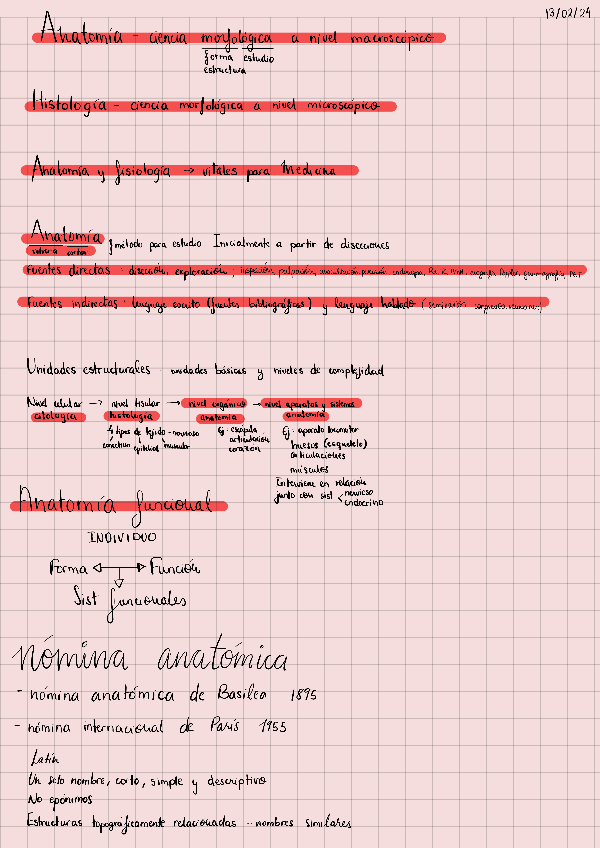 13/02/24
Anatomía - ciencia morfológica a nivel macroscópico
forma estudio
estructura
Histología - ciencia morfológica a nivel microscópico
Anatomía y fisiología → vitales para Medicina
Anatomía } método para estudio Inicialmente a partir de disecciones
cortar
Fuentes directas : disección, exploración ; inspección, palpación, auscultación, percusión
Fuentes indirectas : lenguaje escrito (fuentes bibliográficas) y lenguaje hablado (seminarios, congresos
Unidades estructurales - unidades básicas y niveles de complejidad
Nivel celular → nivel tisular → nivel orgánico → nivel aparatos y sistemas
citología histología anatomía anatomía
4 tipos de tejido - nervioso
conectivo epitelial muscular
Ej: escápula
articulación
corazón
Ej: aparato locomotor
huesos (esqueleto)
articulaciones
músculos
Intervienen en relación
junto con sist < nervioso
endocrino
Anatomía funcional
INDIVIDUO
Forma Función
Sist funcionales
nómina anatómica
- nómina anatómica de Basilea 1895
- nómina internacional de París 1955
Latín
Un solo nombre, corto, simple y descriptivo
No epónimos
Estructuras topográficamente relacionadas - nombres similares